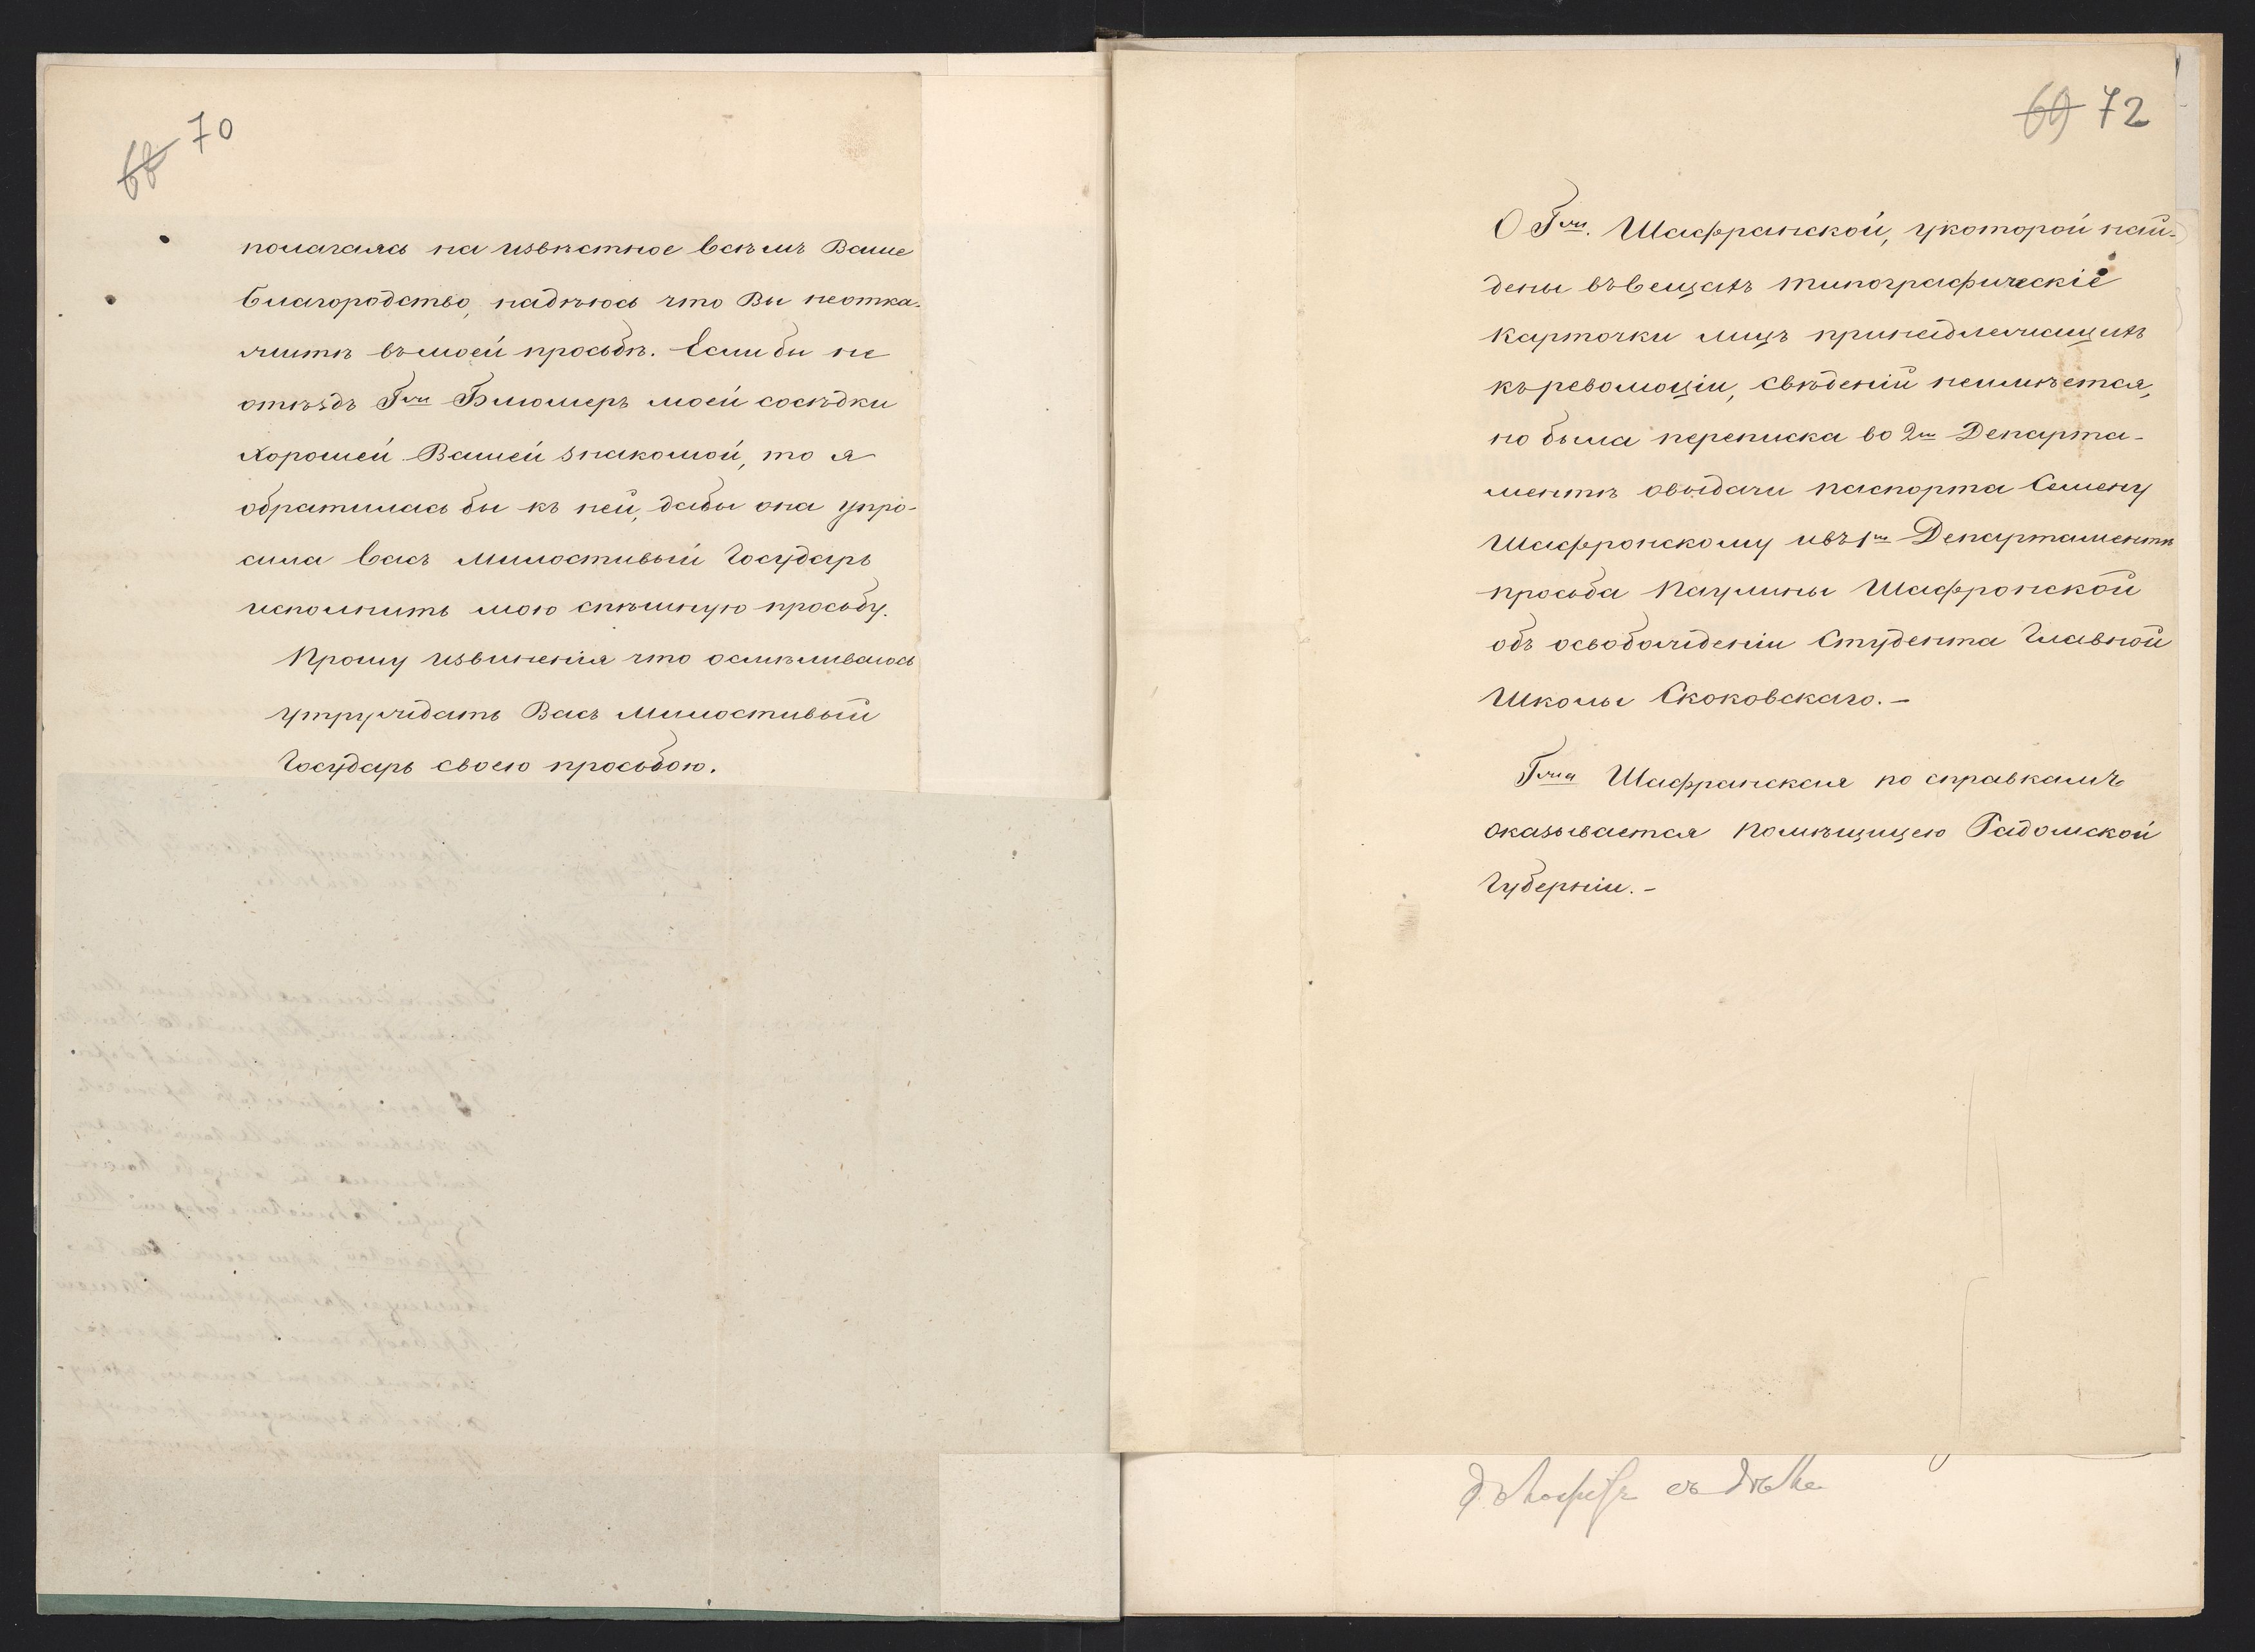 68 70
полагаясь на извѣстное всѣмъ Ваше
благородство, надѣюсь что Вы неотка-
житѣ въмоей просьбѣ. Если бы не
отѣѣздъ Гжи Блюмеръ моей сосѣдки
хорошей Вашей знакомой, то я
обратилась бы къ ней, дабы она упро-
сила Васъ Милостивый Государь
исполнить мою спѣшную просьбу.
Прошу извиненія что осмѣливаюсь
утруждать Васъ Милостивый
Государь своею просьбою.
69 72
О Гжи. Шафранской, укоторой най-
дены въвещахъ типографическіе
карточки лицъ принадлежащихъ
къреволюціи, свѣденій неимѣется,
но была переписка во 2м Департа-
ментѣ овыдачи паспорта Семену
Шафронскому ивъ1м Департаментѣ
просьба Паулины Шафронской
объ освобожденіи Студента Главной
Школы Скоковскаго.—
Гжа Шафранская по справкамъ
оказывается помѣщицею Радомской
Губерніи.—